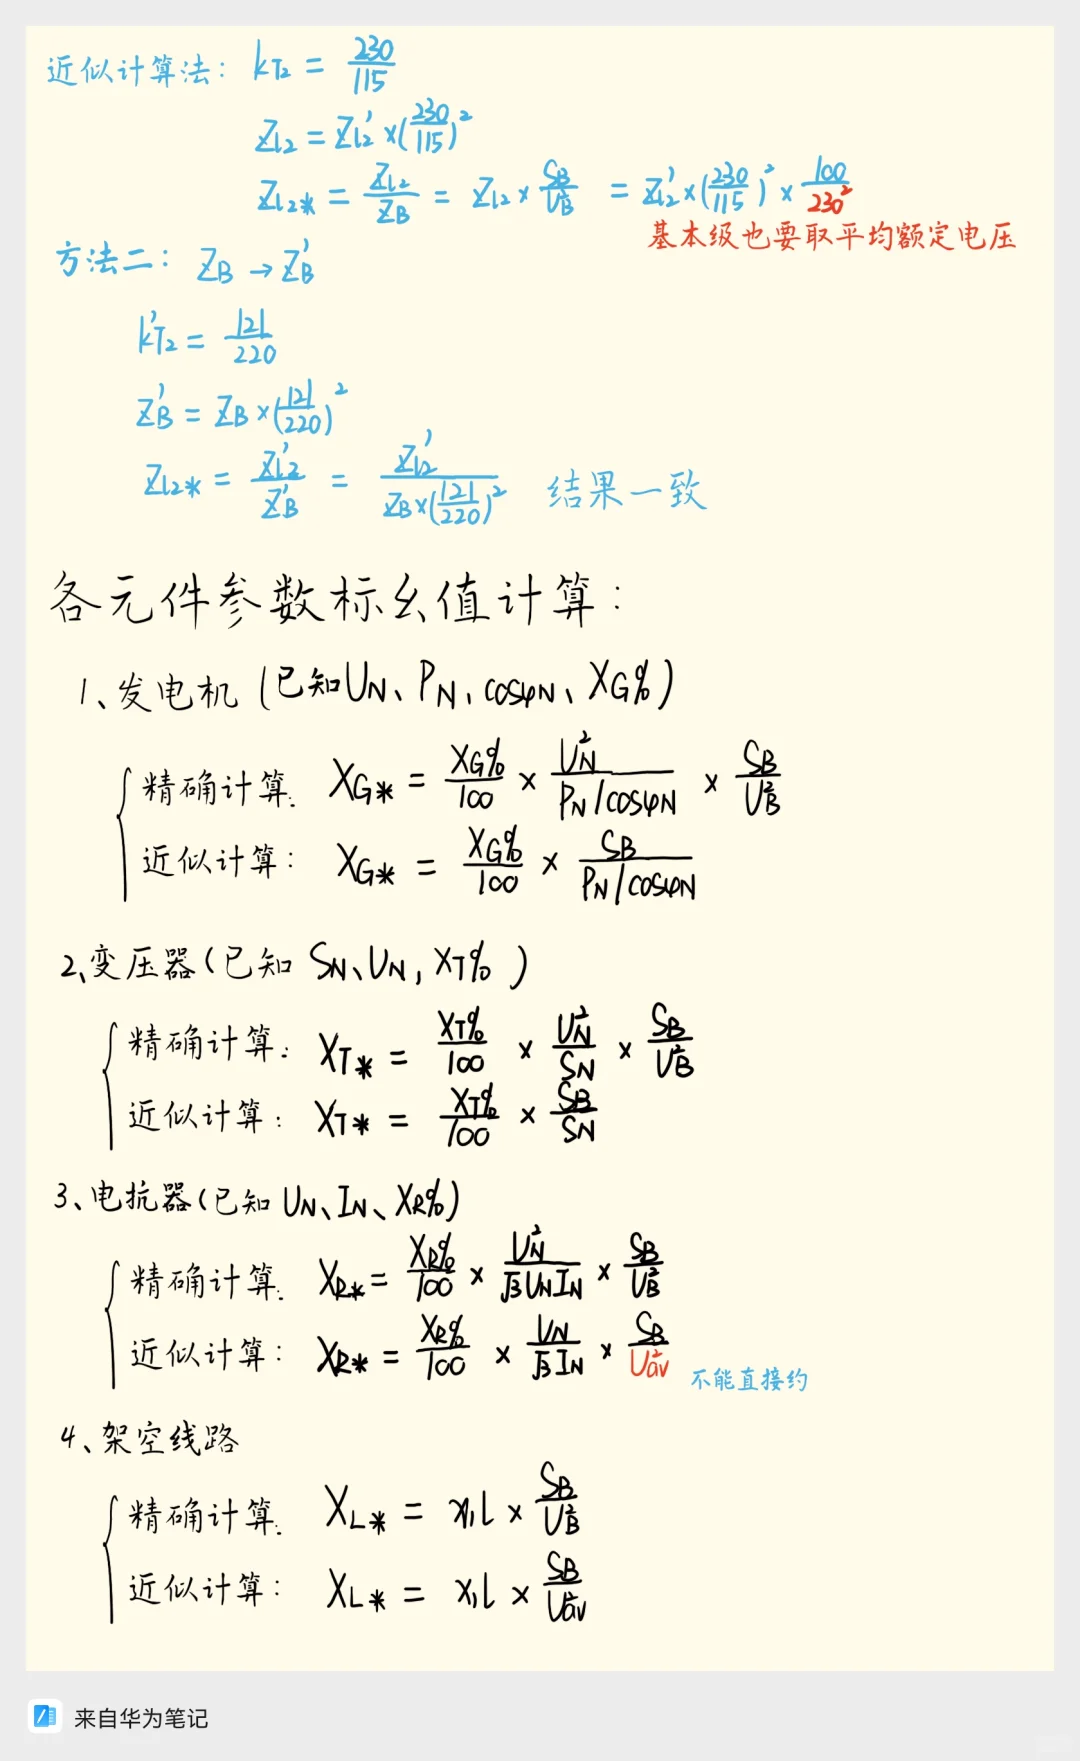 近似计算法: kT2 = 230/115
Zl2 = Zl2' × (230/115)²
Zl2* = Zl2/ZB = Zl2 × SB/UB² = Zl2' × (230/115)² × 100/230²
基本级也要取平均额定电压
方法二: ZB → ZB'
k'T2 = 121/220
ZB' = ZB × (121/220)²
Zl2* = Zl2'/ZB' = Zl2'/(ZB × (121/220)²) 结果一致
各元件参数标幺值计算:
1、发电机 (已知UN、PN、cosφN、XG%)
精确计算: XG* = XG%/100 × UN²/(PN/cosφN) × SB/UB²
近似计算: XG* = XG%/100 × SB/(PN/cosφN)
2、变压器(已知 SN、UN, XT% )
精确计算: XT* = XT%/100 × UN²/SN × SB/UB²
近似计算: XT* = XT%/100 × SB/SN
3、电抗器(已知 UN、IN、XR%)
精确计算: XR* = XR%/100 × UN²/(√3UNIN) × SB/UB²
近似计算: XR* = XR%/100 × UN/(√3IN) × SB/Uav² 不能直接约
4、架空线路
精确计算: XL* = x₁l × SB/UB²
近似计算: XL* = x₁l × SB/Uav²
来自华为笔记